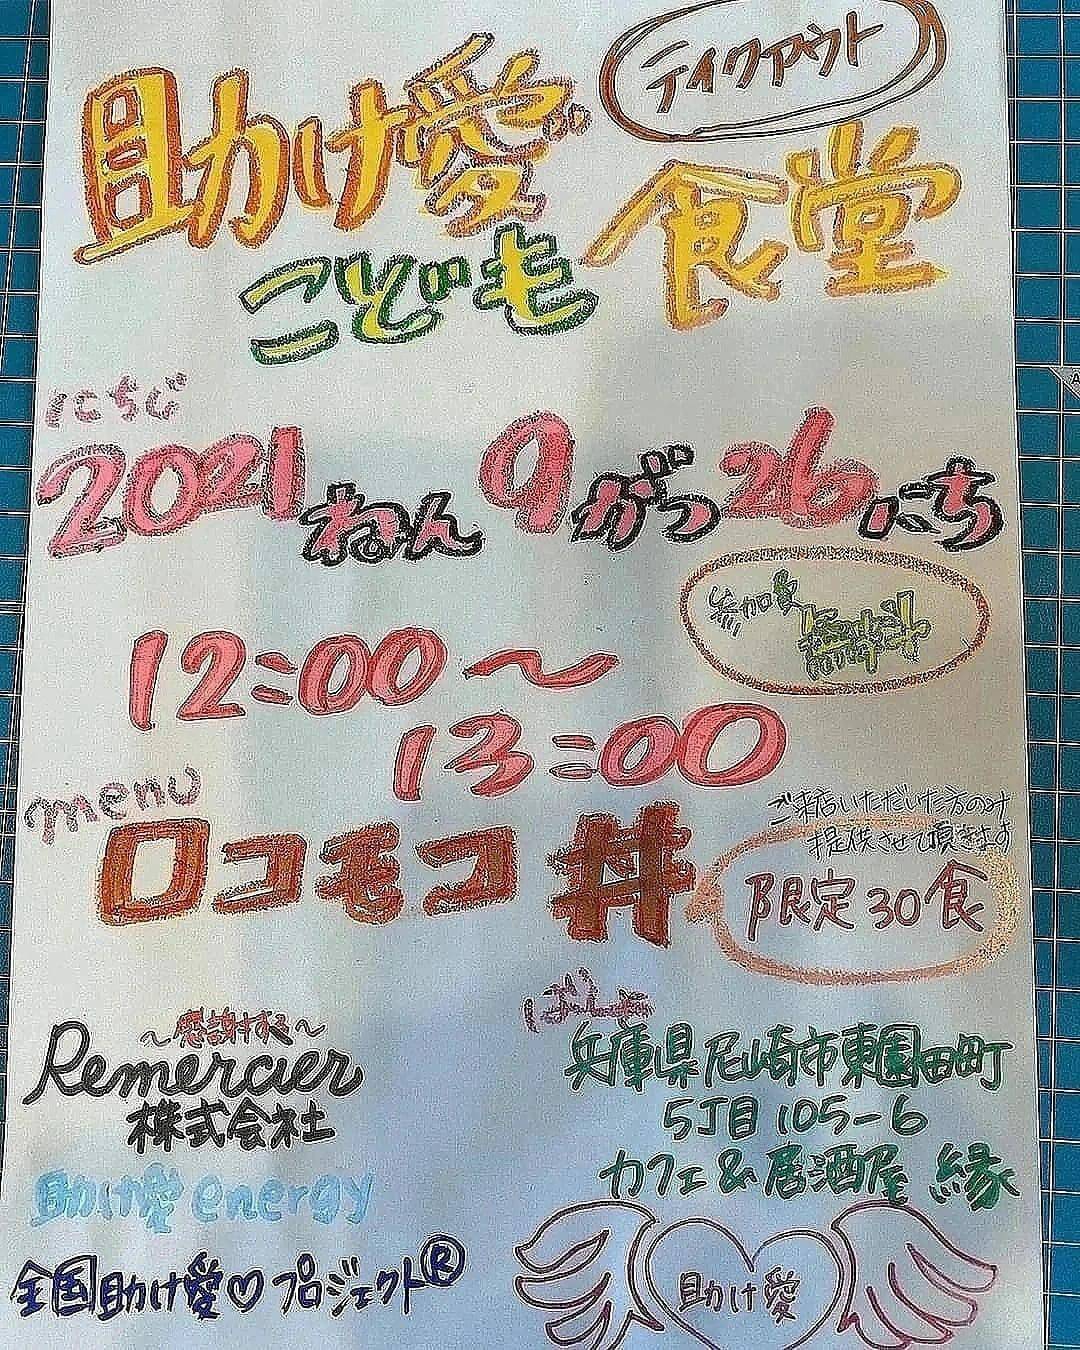 テイクアウト
助け愛
こども
食堂
にちじ
2021ねん9がつ26にち
参加費
12:00〜
13:00
menu
ロコモコ丼
ご来店いただいた方のみ
提供させて頂きます
限定30食
〜感謝する〜
Remercier
株式会社
助け愛energy
全国助け愛♡プロジェクト®
ばしょ
兵庫県尼崎市東園田町
5丁目105-6
カフェ&居酒屋 縁
助け愛